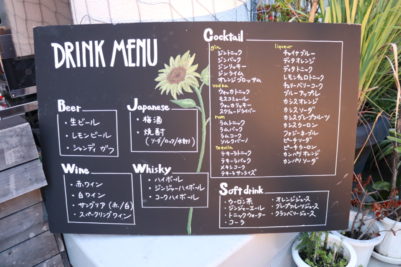 DRINK MENU
Beer
・生ビール
・レモンビール
・シャンディガフ
Japanese
・梅酒
・焼酎
(ソーダ/ロック/水割)
Wine
・赤ワイン
・白ワイン
・サングリア(赤/白)
・スパークリングワイン
Whisky
・ハイボール
・ジンジャーハイボール
・コークハイボール
Cocktail
gin
ジントニック
ジンバック
ジンリッキー
ジンライム
オレンジブロッサム
vodka
ウォッカトニック
モスコミュール
ウォッカリッキー
スクリュードライバー
rum
ラムトニック
ラムバック
ラムコーク
ソルクバーノ
tequila
テキーラトニック
テキーラバック
メキシコーラ
テキーラサンライズ
liqueur
チャイナブルー
ディタオレンジ
ディタトニック
レモネロトニック
チェリーベリーコーク
ブルーアップル
カシスオレンジ
カシスソーダ
カシスグレープフルーツ
カシスウーロン
ファジーネーブル
ピーチソーダ
ピーチウーロン
カンパリオレンジ
カンパリソーダ
Soft drink
・ウーロン茶
・ジンジャーエール
・トニックウォーター
・コーラ
・オレンジジュース
・グレープフルーツジュース
・クランベリージュース